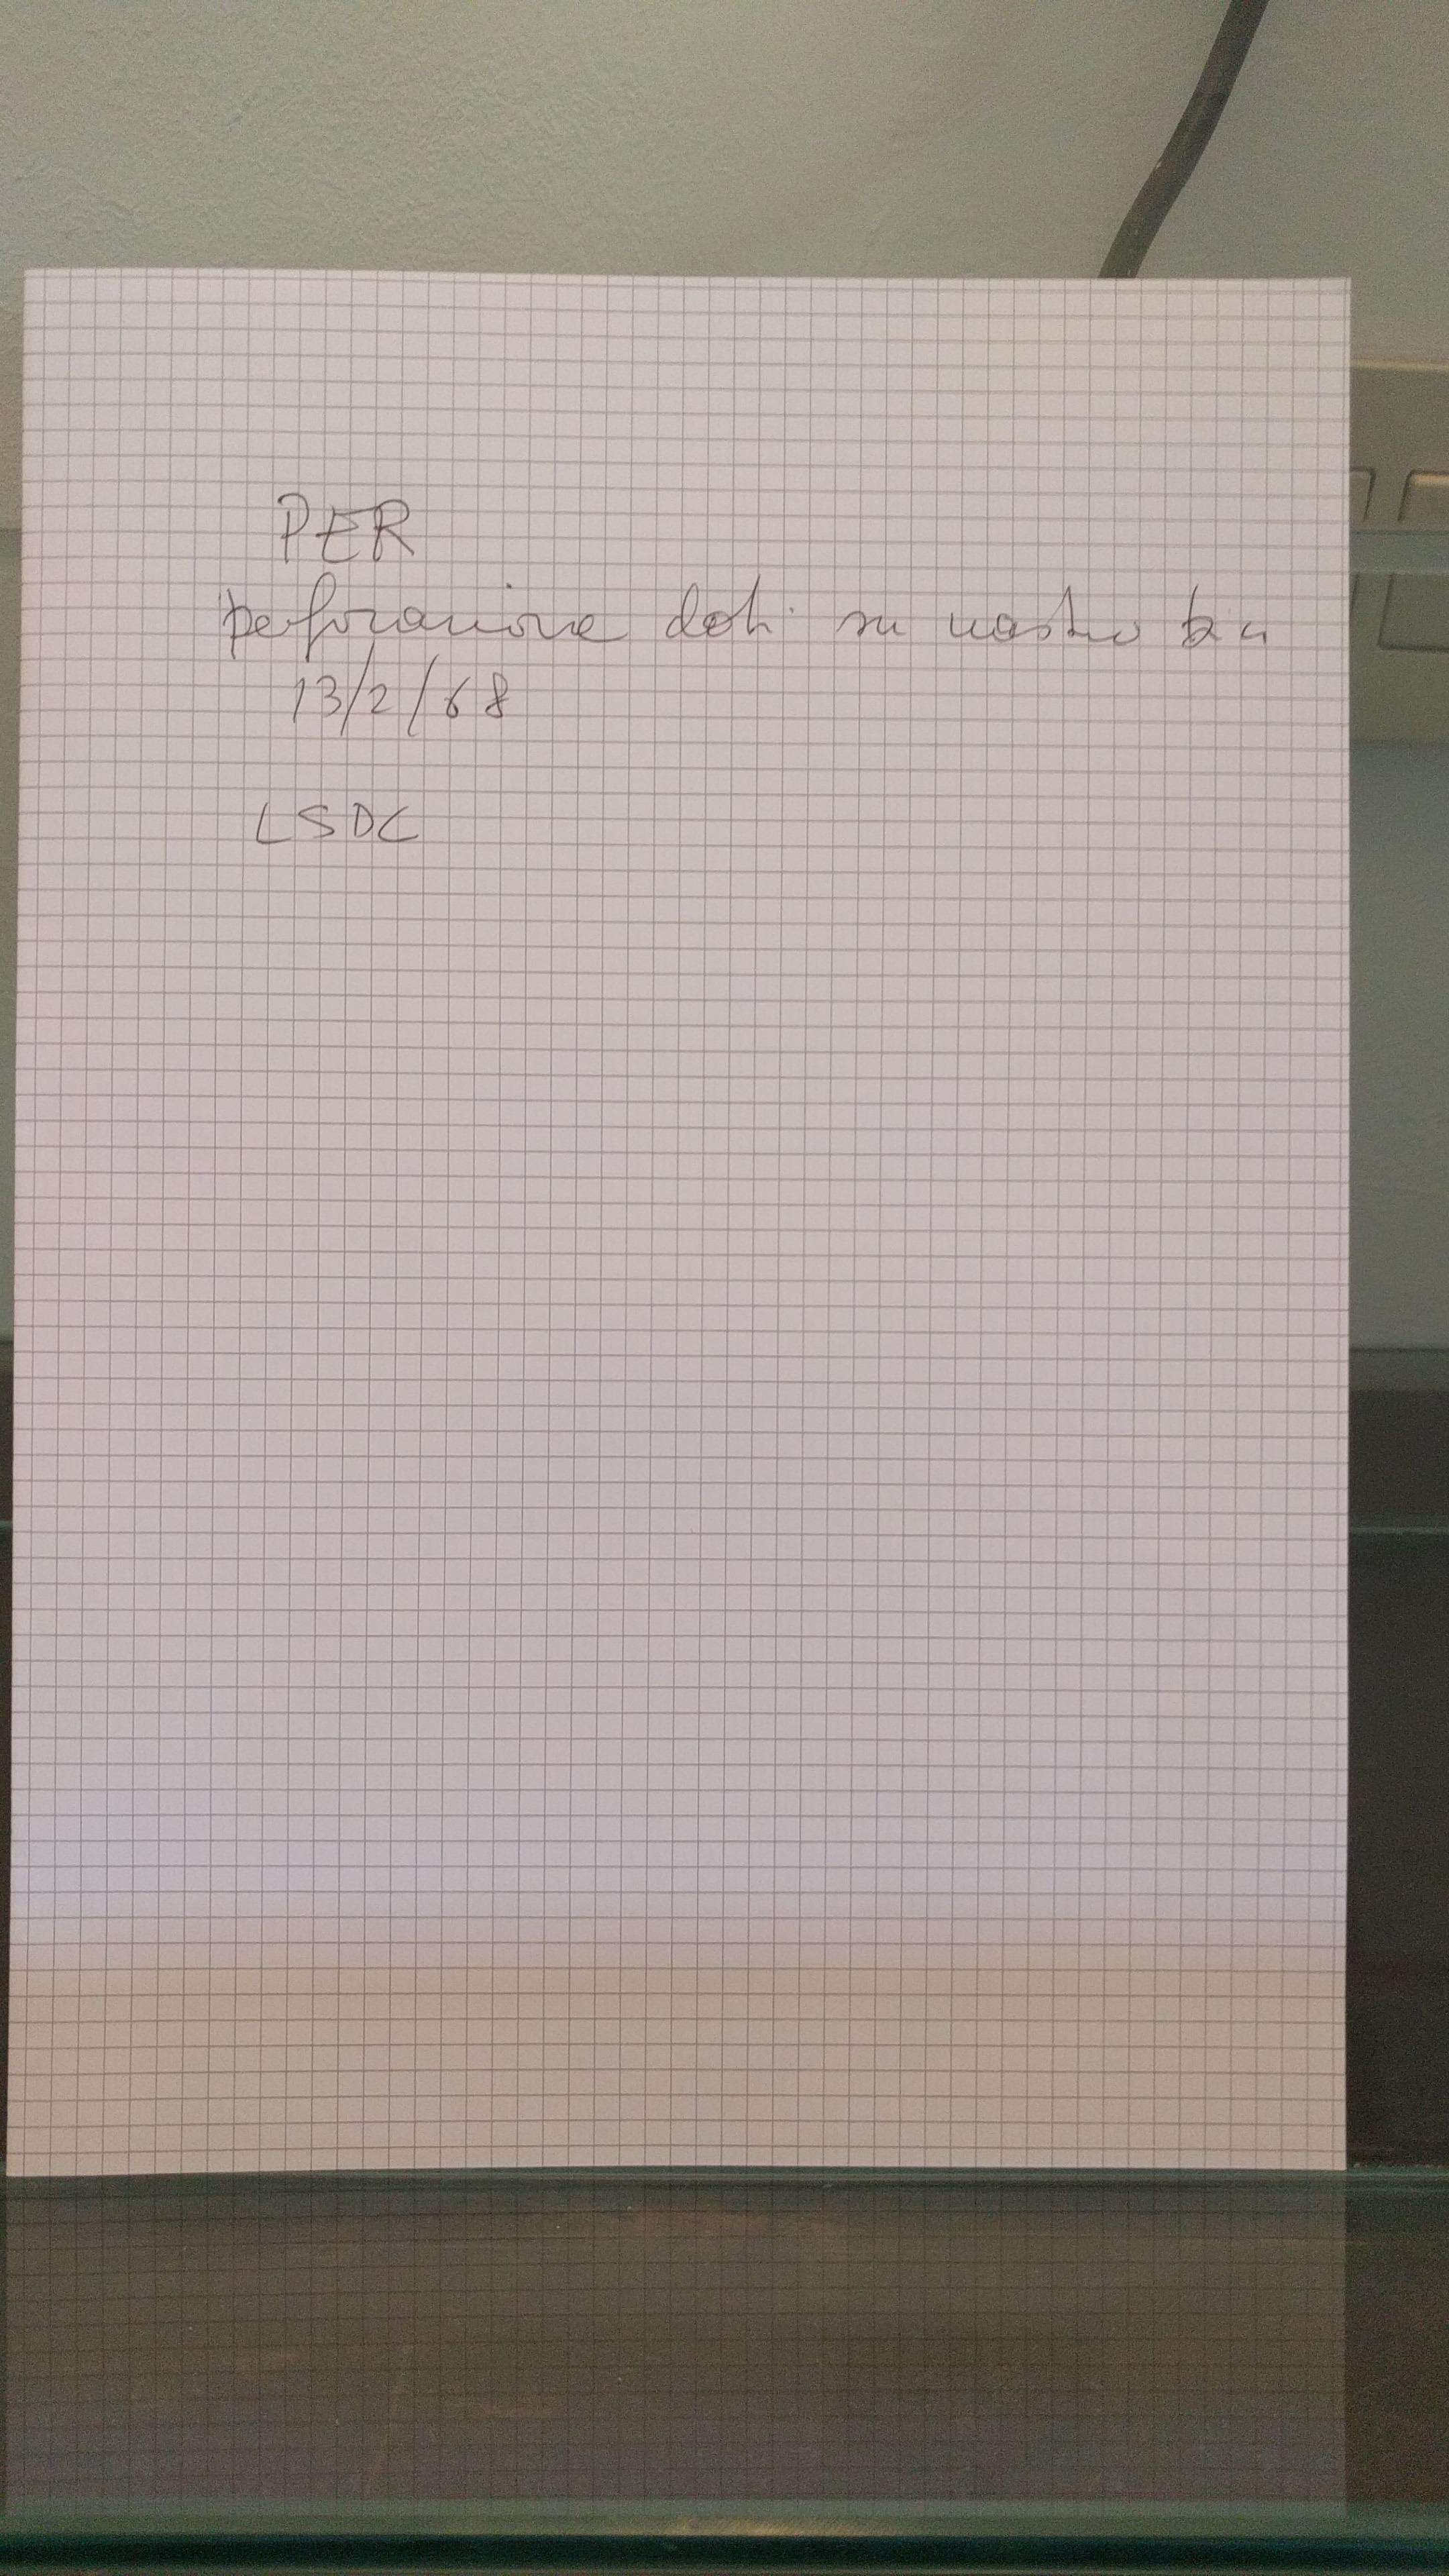 PER
perforazione dati su nastro
13/2/68
LSDC